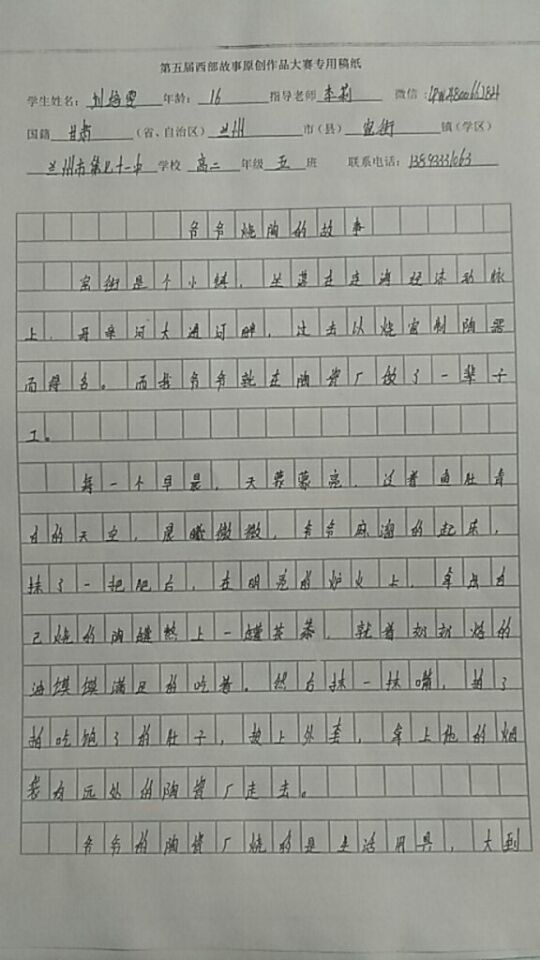 第五届西部故事原创作品大赛专用稿纸
学生姓名: 年龄: 16 指导老师 李莉 微信:
国籍 甘肃 (省、自治区) 兰州 市(县) 窑街 镇(学区)
兰州市第 十一中 学校 高二 年级 五 班 联系电话:
爷爷烧陶的故事
窑街是个小镇,坐落在连海经济动脉
上,享堂河大通河畔,过去以烧窑制陶器
而得名。而我爷爷就在陶瓷厂做了一辈子
工。
每一个早晨,天蒙蒙亮,过着鱼肚青
白的天空,晨曦微微,爷爷麻溜的起床,
抹了一把肥后,在明亮的炉火上,拿出自
己烧的陶罐熬上一罐茶 ,就着奶奶烙的
油馍馍满足的吃着。然后抹一抹嘴,拍了
拍吃饱了的肚子,披上外套,拿上他的烟
袋为远处的陶瓷厂走去。
爷爷的陶瓷厂烧的是生活用具,大到